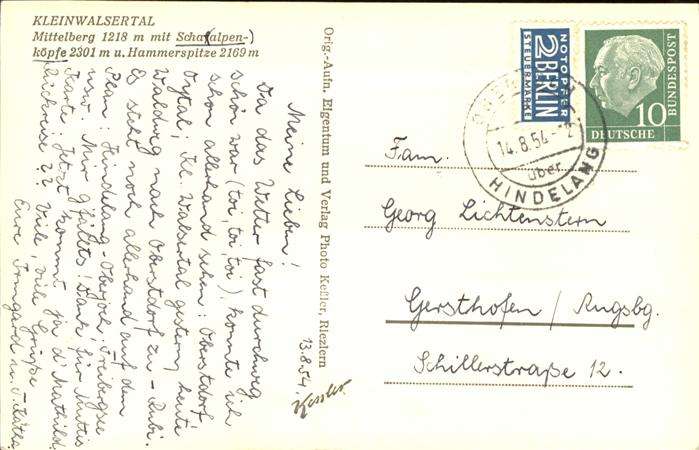 KLEINWALSERTAL
Mittelberg 1218 m mit Schafalpen-
köpfe 2301 m u. Hammerspitze 2169 m
Orig.-Aufn. Eigentum und Verlag Photo Keßler, Riezlern
13.8.54.
Kessler
Meine Lieben!
Da das Wetter fast durchweg
schön war (toi, toi, toi) konnte ich
schon allerhand sehen: Oberstdorf
Oytal, Kl. Walsertal gestern, heute
Waldweg nach Oberstdorf zu - Rubi.
Es steht noch allerhand auf dem
Plan: Hindelang - Oberjoch, Freibergsee
usw. Mir gfällts! Dank für Muttis
Karte. Jetzt kommt ja d' Mathild.
Rückreise?? Viele, viele Grüße
Eure Irmgard u.
NOTOPFER
2 BERLIN
STEUERMARKE
DEUTSCHE
BUNDESPOST
10
14.8.54.-12
über
HINDELANG
Fam.
Georg Lichtenstern
Gersthofen / Augsbg.
Schillerstraße 12.